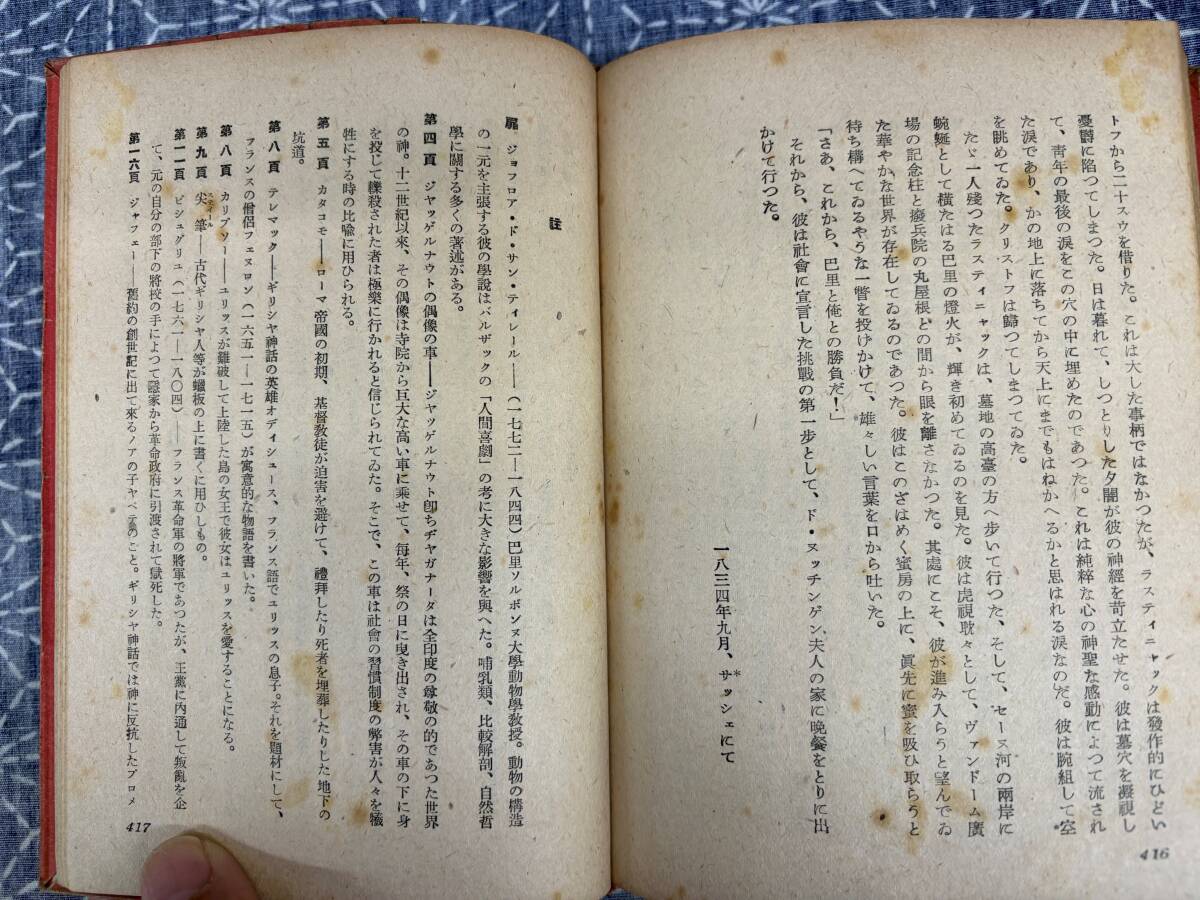 トフから二十スウを借りた。これは大した事柄ではなかつたが、ラスティニャックは發作的にひどい
憂鬱に陷つてしまつた。日は暮れて、しつとりした夕闇が彼の神經を苛立たせた。彼は墓穴を凝視し
て、靑年の最後の淚をこの穴の中に埋めたのであつた。これは純粹な心の神聖な感動によつて流され
た淚であり、かの地上に落ちてから天上にまでもはねかへるかと思はれる淚なのだ。彼は腕組して空
を眺めてゐた。クリストフは歸つてしまつてゐた。
たゞ一人殘つたラスティニャックは、墓地の高臺の方へ步いて行つた、そして、セーヌ河の兩岸に
蜿蜒として橫たはる巴里の燈火が、輝き初めてゐるのを見た。彼は虎視眈々として、ヴァンドーム廣
場の記念柱と癈兵院の丸屋根との間から眼を離さなかつた。其處にこそ、彼が進み入らうと望んでゐ
た華やかな世界が存在してゐるのであつた。彼はこのざはめく蜜房の上に、眞先に蜜を吸ひ取らうと
待ち構へてゐるやうな一瞥を投げかけて、雄々しい言葉を口から吐いた。
「さあ、これから、巴里と俺との勝負だ!」
それから、彼は社會に宣言した挑戰の第一步として、ド・ヌッチンゲン夫人の家に晩餐をとりに出
かけて行つた。
一八三四年九月、サッシェにて
*
416
註
扉 ジョフロア・ド・サン・ティレール――(一七七二―一八四四)巴里ソルボンヌ大學動物學敎授。動物の構造
の一元を主張する彼の學說はバルザックの「人間喜劇」の考に大きな影響を與へた。哺乳類、比較解剖、自然哲
學に關する多くの著述がある。
第四頁 ジヤッゲルナウトの偶像の車――ジヤッゲルナウト卽ちヂヤガナータは全印度の尊敬の的であつた世界
の神。十二世紀以來、その偶像は寺院から巨大な高い車に乘せて、每年、祭の日に曳き出され、その車の下に身
を投じて轢殺された者は極樂に行かれると信じられてゐた。そこで、この車は社會の習慣制度の弊害が人々を犧
牲にする時の比喩に用ひられる。
第五頁 カタコモ――ローマ帝國の初期、基督敎徒が迫害を避けて、禮拜したり死者を埋葬したりした地下の
坑道。
第八頁 テレマック――ギリシヤ神話の英雄オディシュース、フランス語でユリッスの息子。それを題材にして、
フランスの僧侶フェヌロン(一六五一―一七一五)が寓意的な物語を書いた。
第八頁 カリプソー――ユリッスが難破して上陸した島の女王で彼女はユリッスを愛することになる。
第九頁 尖筆――古代ギリシヤ人等が蠟板の上に書くに用ひしもの。
スティール
第一一頁 ピシュグリユ(一七六一―一八〇四)――フランス革命軍の將軍であつたが、王黨に內通して叛亂を企
て、元の自分の部下の將校の手によつて隱家から革命政府に引渡されて獄死した。
第一六頁 ジャフェー――舊約の創世記に出て來るノアの子ヤペテのこと。ギリシヤ神話では神に反抗したプロメ
417